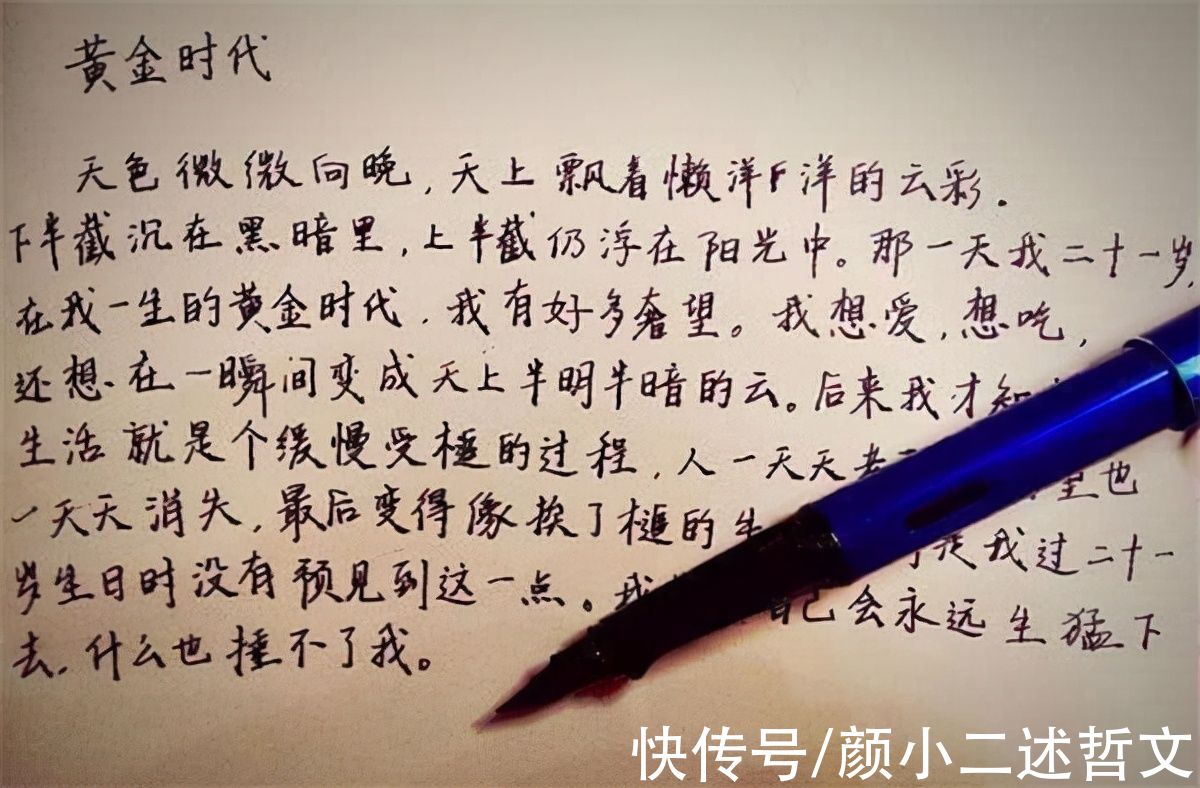 黄金时代
天色微微向晚,天上飘着懒洋洋的云彩.
下半截沉在黑暗里,上半截仍浮在阳光中。那一天我二十一岁,
在我一生的黄金时代,我有好多奢望。我想爱,想吃,
还想在一瞬间变成天上半明半暗的云。后来我才知
生活就是个缓慢受棰的过程,人一天天老 望也
一天天消失,最后变得像挨了棰的牛 我过二十一
岁生日时没有预见到这一点。我 自己会永远生猛下
去,什么也捶不了我。
快传号/颜小二述哲文